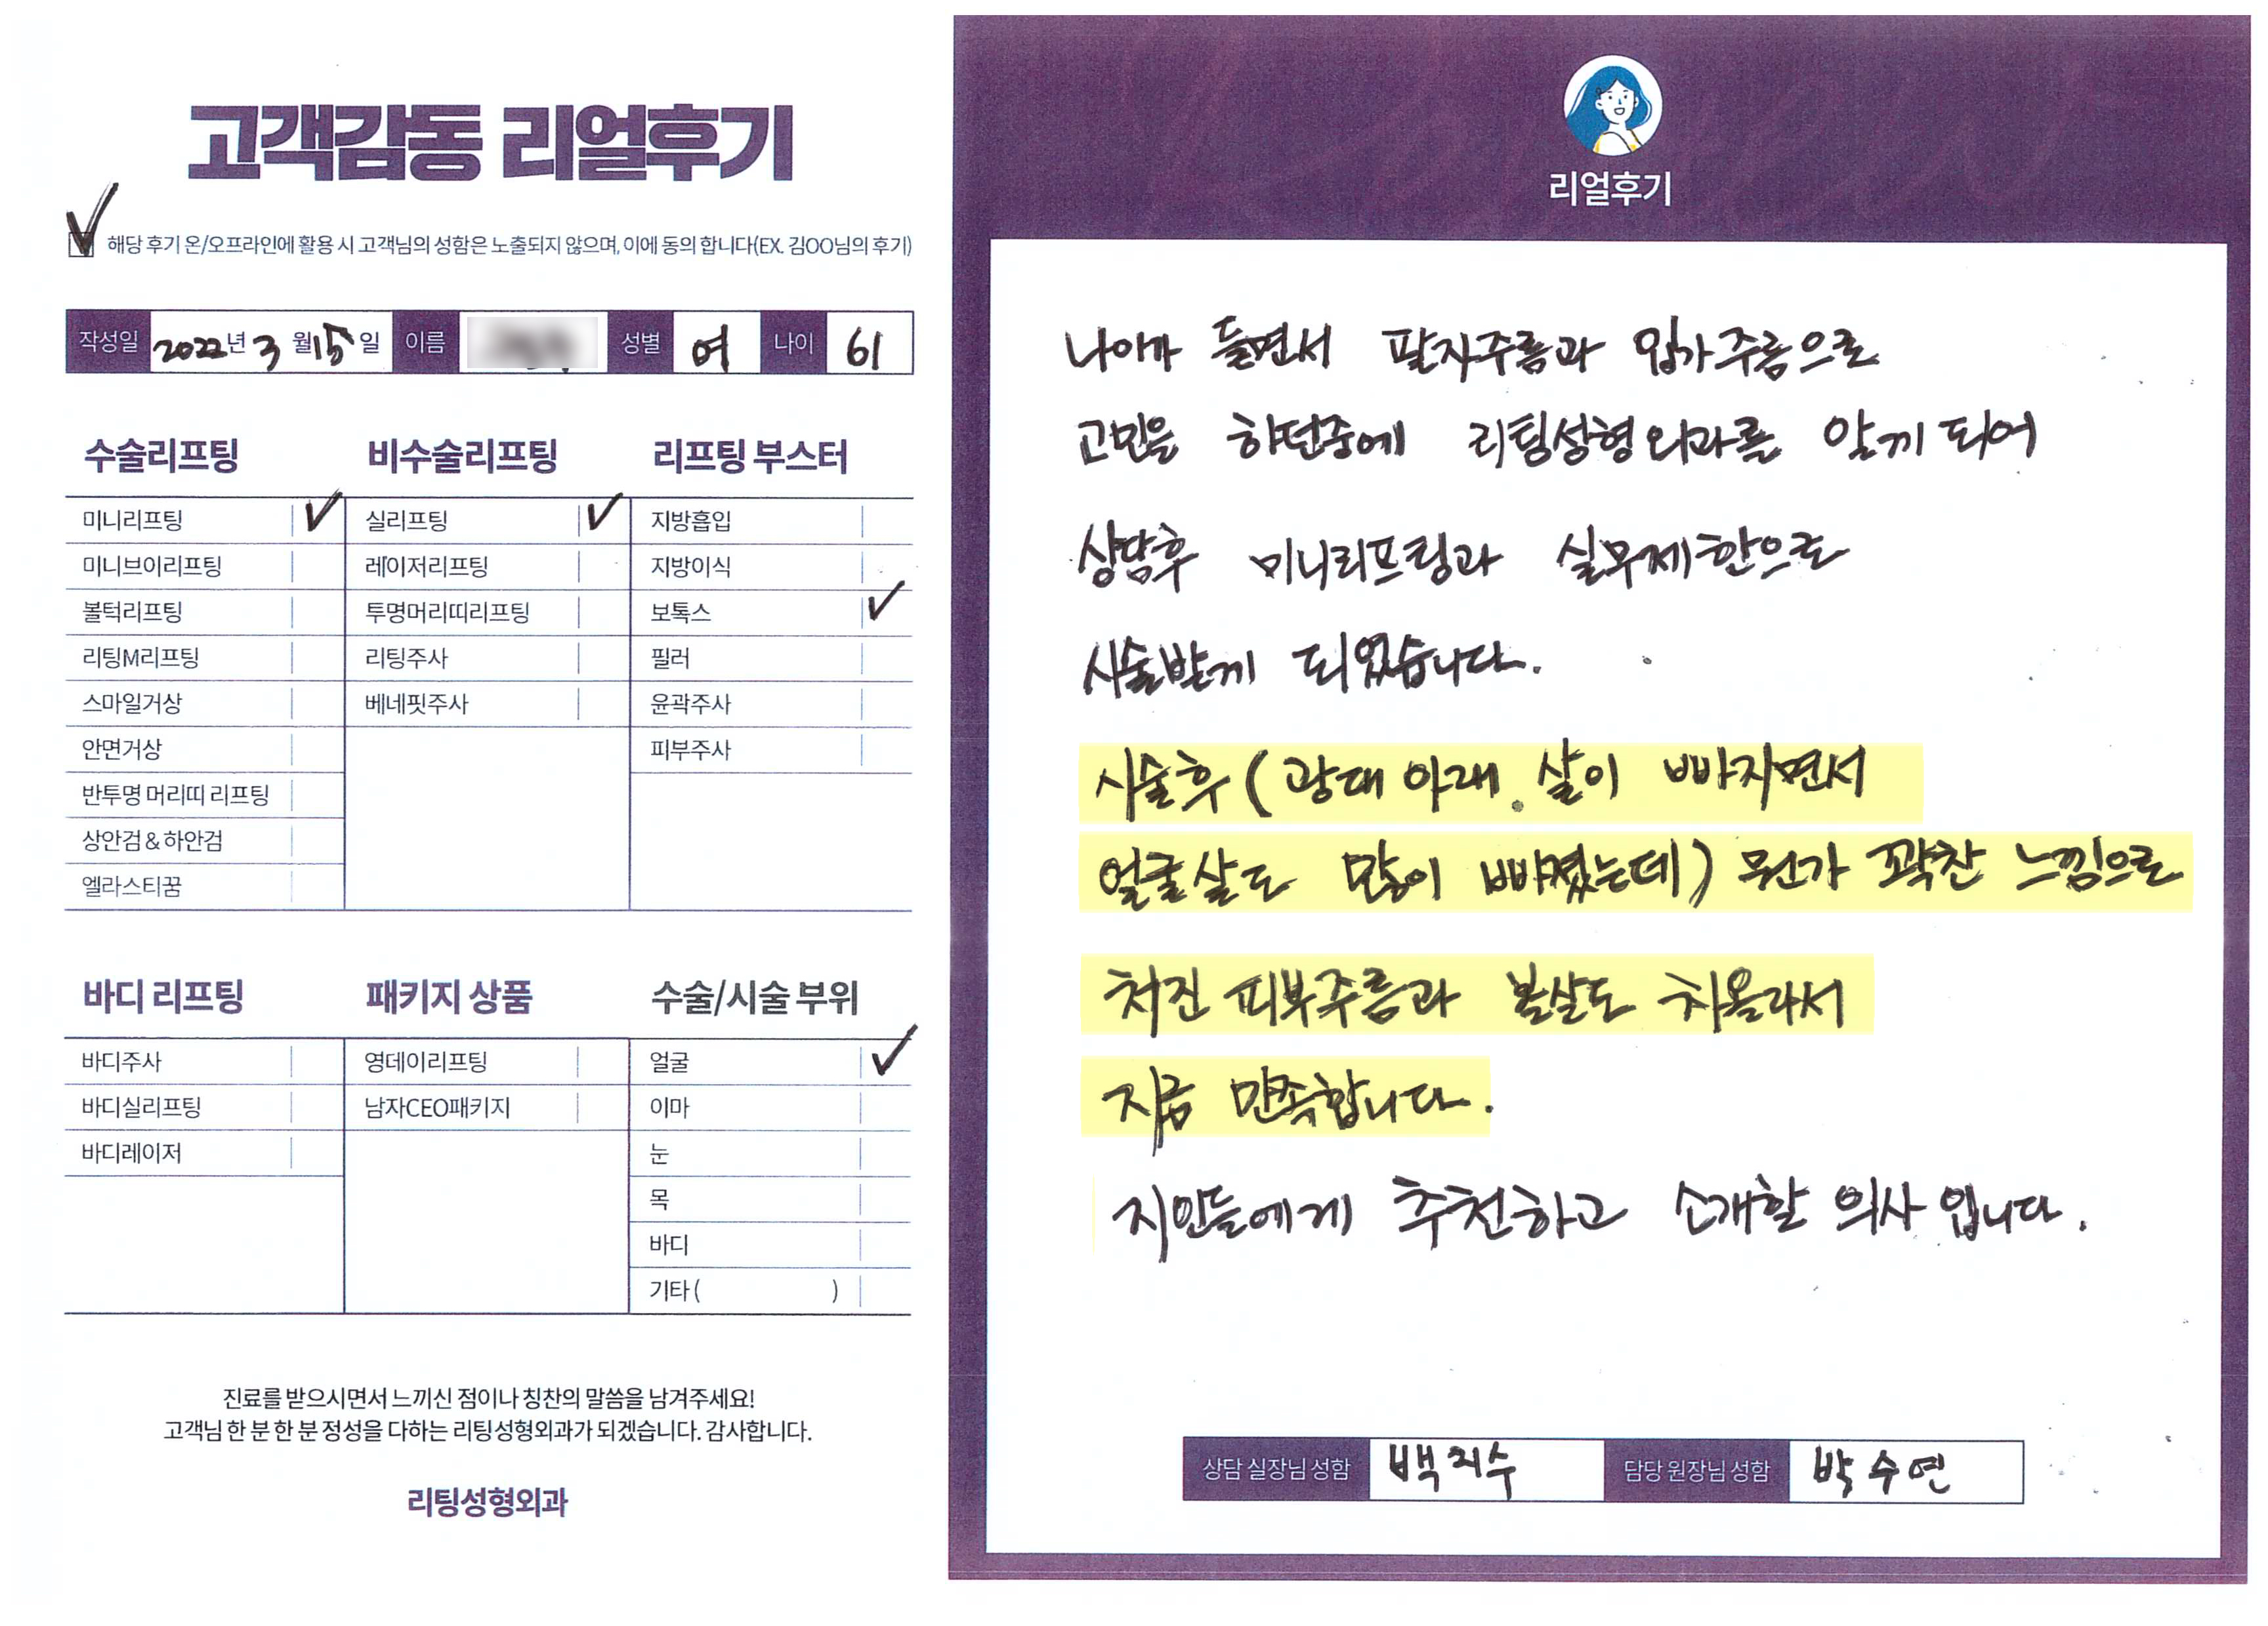 고객감동 리얼후기
해당 후기 온/오프라인에 활용 시 고객님의 성함은 노출되지 않으며, 이에 동의 합니다(EX. 김OO님의 후기)
작성일 2022년 3월 15일 이름 성별 여 나이 61
수술리프팅
미니리프팅
미니브이리프팅
볼턱리프팅
리팅M리프팅
스마일거상
안면거상
반투명 머리띠 리프팅
상안검 & 하안검
엘라스티꿈
비수술리프팅
실리프팅
레이저리프팅
투명머리띠리프팅
리팅주사
베네핏주사
리프팅 부스터
지방흡입
지방이식
보톡스
필러
윤곽주사
피부주사
바디 리프팅
바디주사
바디실리프팅
바디레이저
패키지 상품
영데이리프팅
남자CEO패키지
수술/시술 부위
얼굴
이마
눈
목
바디
기타 ( )
진료를 받으시면서 느끼신 점이나 칭찬의 말씀을 남겨주세요!
고객님 한 분 한 분 정성을 다하는 리팅성형외과가 되겠습니다. 감사합니다.
리팅성형외과
리얼후기
나이가 들면서 팔자주름과 입가주름으로
고민을 하던중에 리팅성형외과를 알게 되어
상담후 미니리프팅과 실무제한으로
시술받게 되었습니다.
시술후 ( 광대 아래 살이 빠지면서
얼굴살도 많이 빠졌는데) 뭔가 꽉찬 느낌으로
처진 피부주름과 볼살도 차올라서
지금 만족합니다.
지인들에게 추천하고 소개할 의사 입니다.
상담 실장님 성함 백지수 담당 원장님 성함 박수연